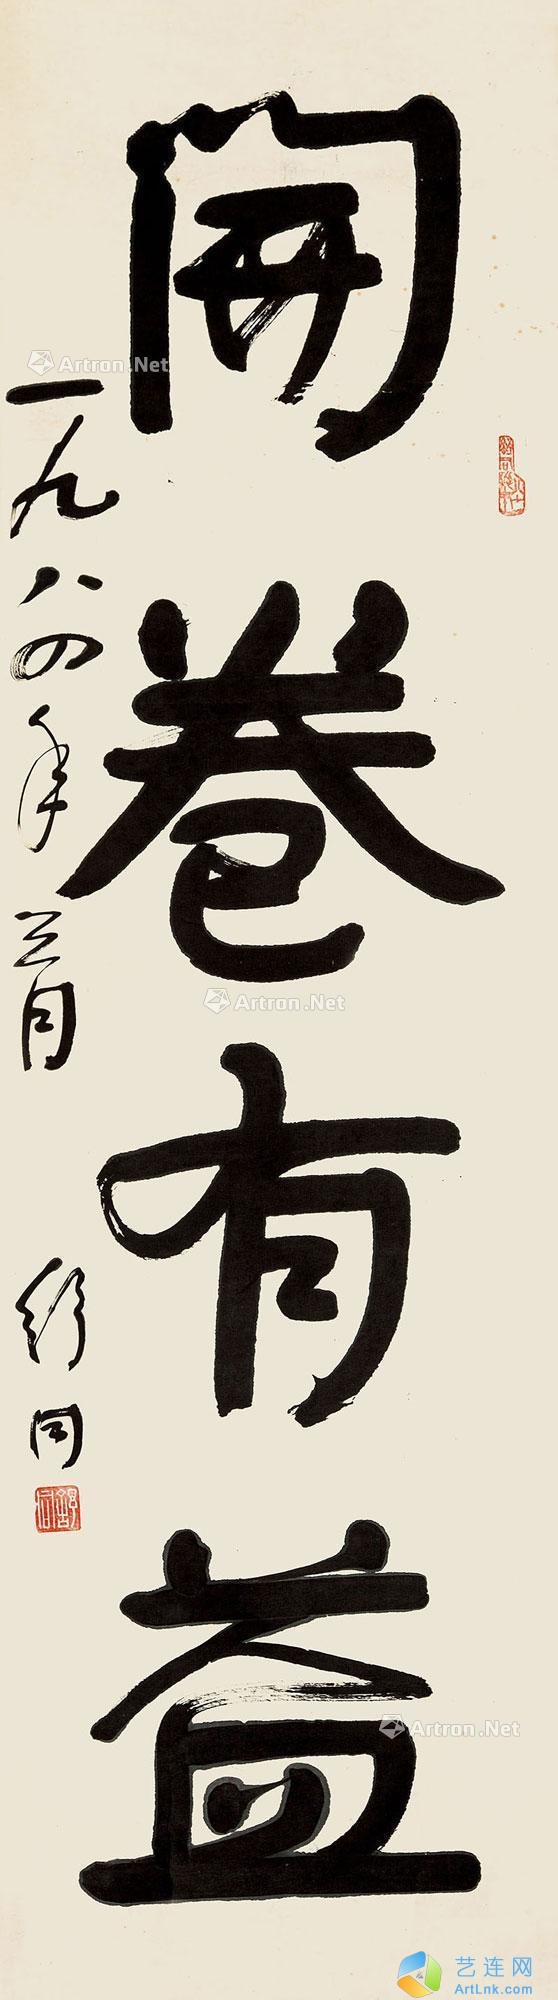 開卷有益
一九八四年三月
舒同
舒同
Artron.Net
Artron.Net
Artron.Net
艺连网
ArtLnk.com